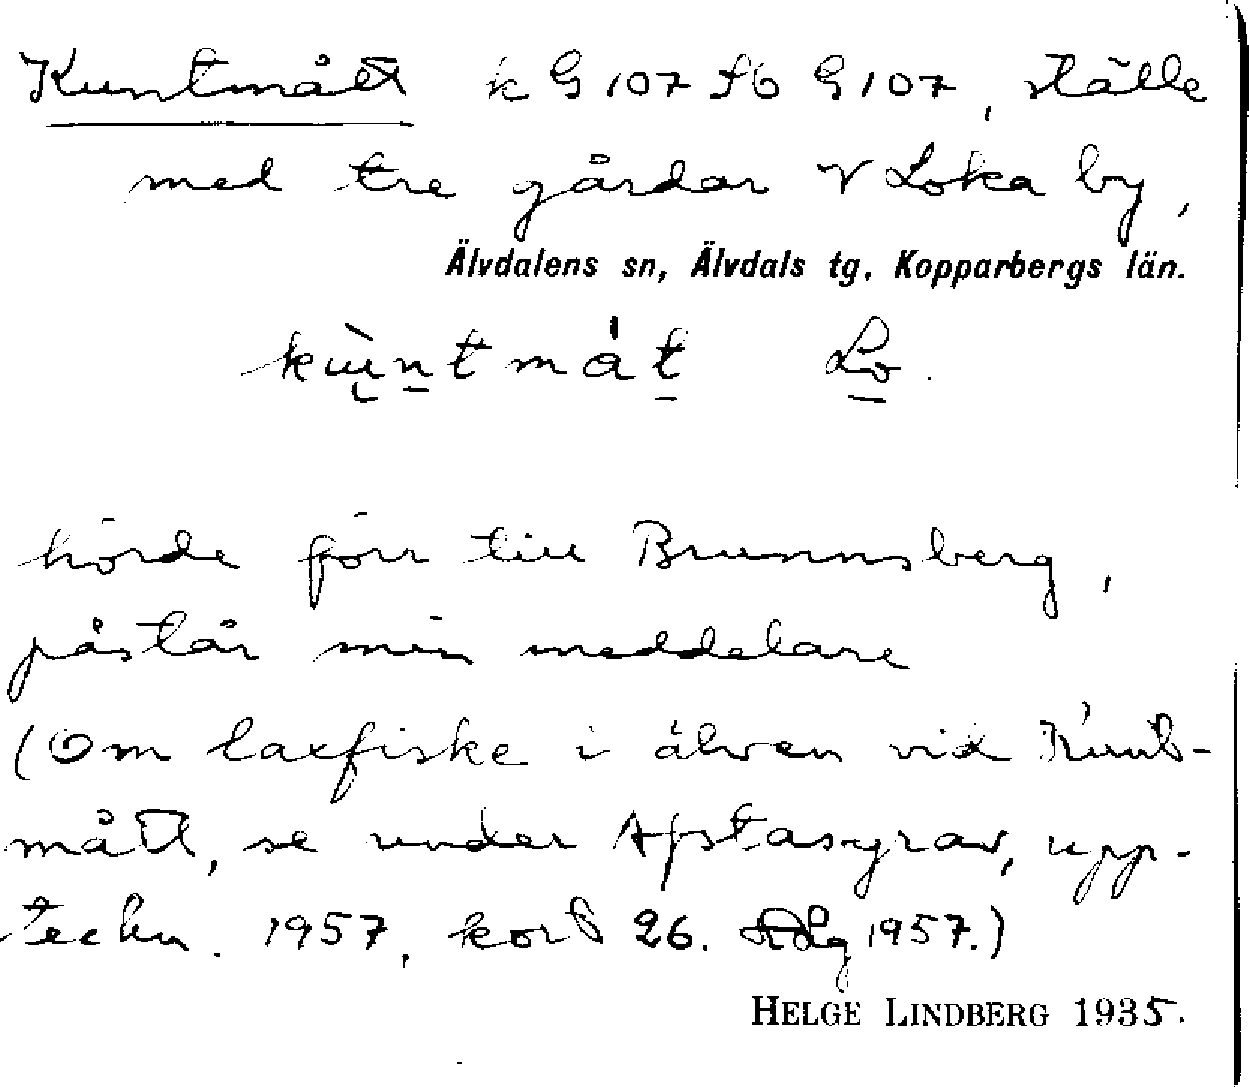 Kuntmått k G 107 fb G 107, ställe
med tre gårdar V Loka by,
Älvdalens sn, Älvdals tg. Kopparbergs län.
kùntmåt Lo.
hörde förr till Brunnsberg,
påstår min meddelare
(Om laxfiske i älven vid Kunt-
mått, se under Apstasgrav, upp-
teckn. 1957, kort 26. 1957.)
HELGE LINDBERG 1935.